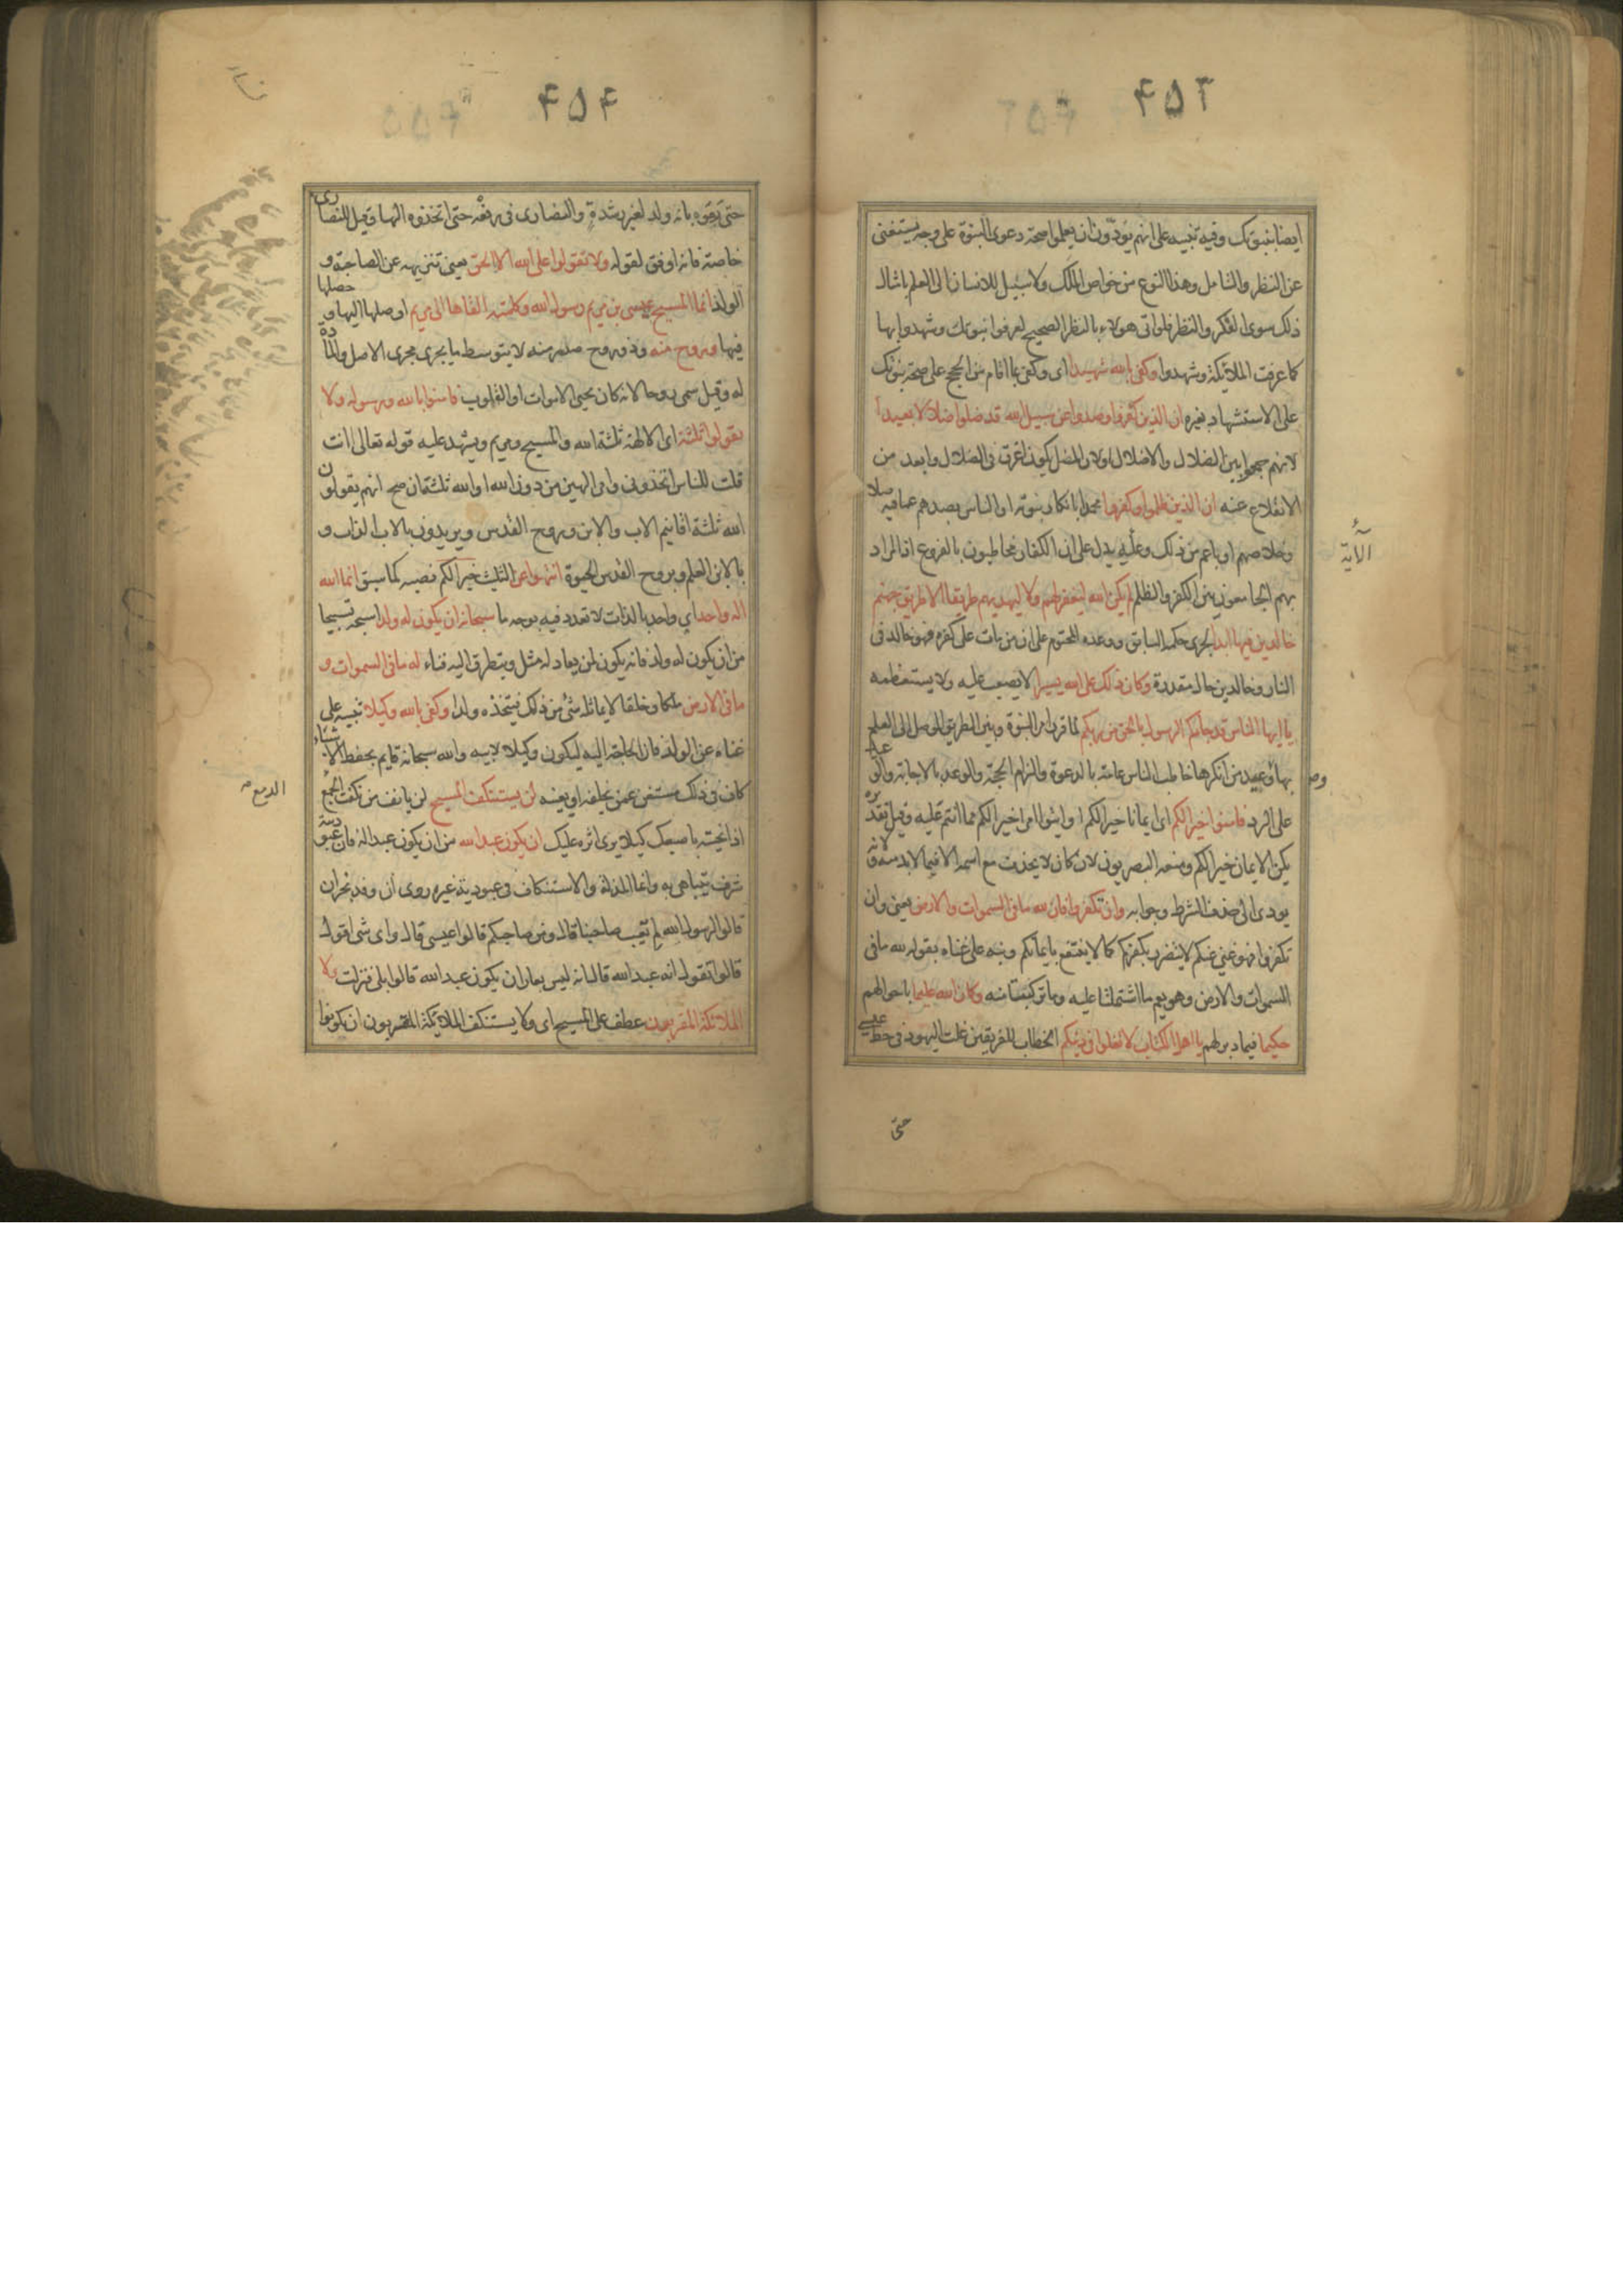 ۴۵۳
ايضا بنبوتك وفيه تنبيه على انهم يودون ان يعلموا صحة دعوى النبوة على وجه يستغنى
عن النظر والتامل وهذا النوع من خواص الملك ولا سبيل للانسان الى العلم بامثال
ذلك سوى الفكر والنظر فلو اتى هولاء بالنظر الصحيح لعرفوا نبوتك وشهدوا بها
كما عرفت الملائكة وشهدوا وكفى بالله شهيدا اى وكفى بما اقام من الحجج على صحة نبوتك
على الاستشهاد بغيره ان الذين كفروا وصدوا عن سبيل الله قد ضلوا ضلالا بعيدا
لانهم جمعوا بين الضلال والاضلال ولان المضل يكون اغرق فى الضلال وابعد من
الانقلاع عنه ان الذين ظلموا وكفروا محمدا بانكار نبوته او الناس بصدهم عما فيه صلا
وخلاصهم او باعم من ذلك وعليه يدل على ان الكفار مخاطبون بالفروع اذ المراد
الآية
بهم الجامعون بين الكفر والظلم لم يكن الله ليغفر لهم ولا ليهديهم طريقا الا طريق جهنم
خالدين فيها ابدا لجرى حكمه السابق ووعده المحتوم على ان من مات على كفره فهو خالد فى
النار وخالدين حال مقدرة وكان ذلك على الله يسيرا لا يصعب عليه ولا يستعظمه
يا ايها الناس قد جاءكم الرسول بالحق من ربكم لما قرر امر النبوة وبين الطريق الموصل الى العلم
بها ووعيد من انكرها خاطب الناس عامة بالدعوة والزام الحجة والوعد بالاجابة والو عيد
على الرد فامنوا خيرا لكم اى ايمانا خيرا لكم او ايتوا امرا خيرا لكم مما انتم عليه وقيل تقد يره
يكن الايمان خيرا لكم ومنعه البصريون لان كان لا يحذف مع اسمه الا فيما لابد منه و لانه
يودى الى حذف الشرط وجوابه وان تكفروا فان لله ما فى السموات والارض يعنى وان
تكفروا فهو غني عنكم لا يتضرر بكفركم كما لا ينتفع بايمانكم ونبه على غناه بقوله لله ما فى
السموات والارض وهو يعم ما اشتملتا عليه وما تركبتا منه وكان الله عليما باحوالهم
حكيما فيما دبر لهم يا اهل الكتاب لا تغلوا فى دينكم الخطاب للفريقين غلت اليهود فى حط عيسى
حتى
۴۵۴
حتى رموه بانه ولد لغير رشدة والنصارى فى رفعه حتى اتخذوه الها وقيل للنصارى
خاصة فانه اوفق لقوله ولا تقولوا على الله الا الحق يعنى تنزيهه عن الصاحبة و
الولد انما المسيح عيسى بن مريم رسول الله وكلمته القاها الى مريم اوصلها اليها و حصلها
فيها وروح منه وذو روح صدر منه لا بتوسط ما يجرى مجرى الاصل والما دة
له وقيل سمى روحا لانه كان يحيى الاموات او القلوب فامنوا بالله ورسوله ولا
تقولوا ثلثة اى الالهة ثلثة الله والمسيح ومريم ويشهد عليه قوله تعالى اانت
قلت للناس اتخذونى وامى الهين من دون الله او الله ثلثة ان صح انهم يقولون
الله ثلثة اقانيم الاب والابن وروح القدس ويريدون بالاب الذات و
بالابن العلم وبروح القدس الحيوة انتهوا عن التثليث خيرا لكم نصبه كما سبق انما الله
اله واحد اي واحد بالذات لا تعدد فيه بوجه ما سبحانه ان يكون له ولد اسبحه تسبيحا
من ان يكون له ولد فانه يكون لمن يعادله مثل ويتطرق اليه فناء له ما فى السموات و
ما فى الارض ملكا وخلقا لا يماثله شئ من ذلك فيتخذه ولدا وكفى بالله وكيلا تنبيه على
غناه عن الولد فان الحاجة اليه ليكون وكيلا لابيه والله سبحانه قايم بحفظ الاشياء
كاف فى ذلك مستغن عمن يخلفه او يعينه لن يستنكف المسيح لن يانف من نكفت الدمع
الدمع
اذا نحيته باصبعك كيلا يرى اثره عليك ان يكون عبدا لله من ان يكون عبدا له فان عبو دية
شرف يتباهى به وانما المذلة والاستنكاف فى عبودية غيره روى ان وفد نجران
قالوا لرسول الله لم تعيب صاحبنا قال ومن صاحبكم قالوا عيسى قال واى شى اقول
قالوا تقول انه عبد الله قال انه ليس بعار ان يكون عبد الله قالوا بلى فنزلت ولا
الملائكة المقربون عطف على المسيح اى ولا يستنكف الملائكة المقربون ان يكونوا